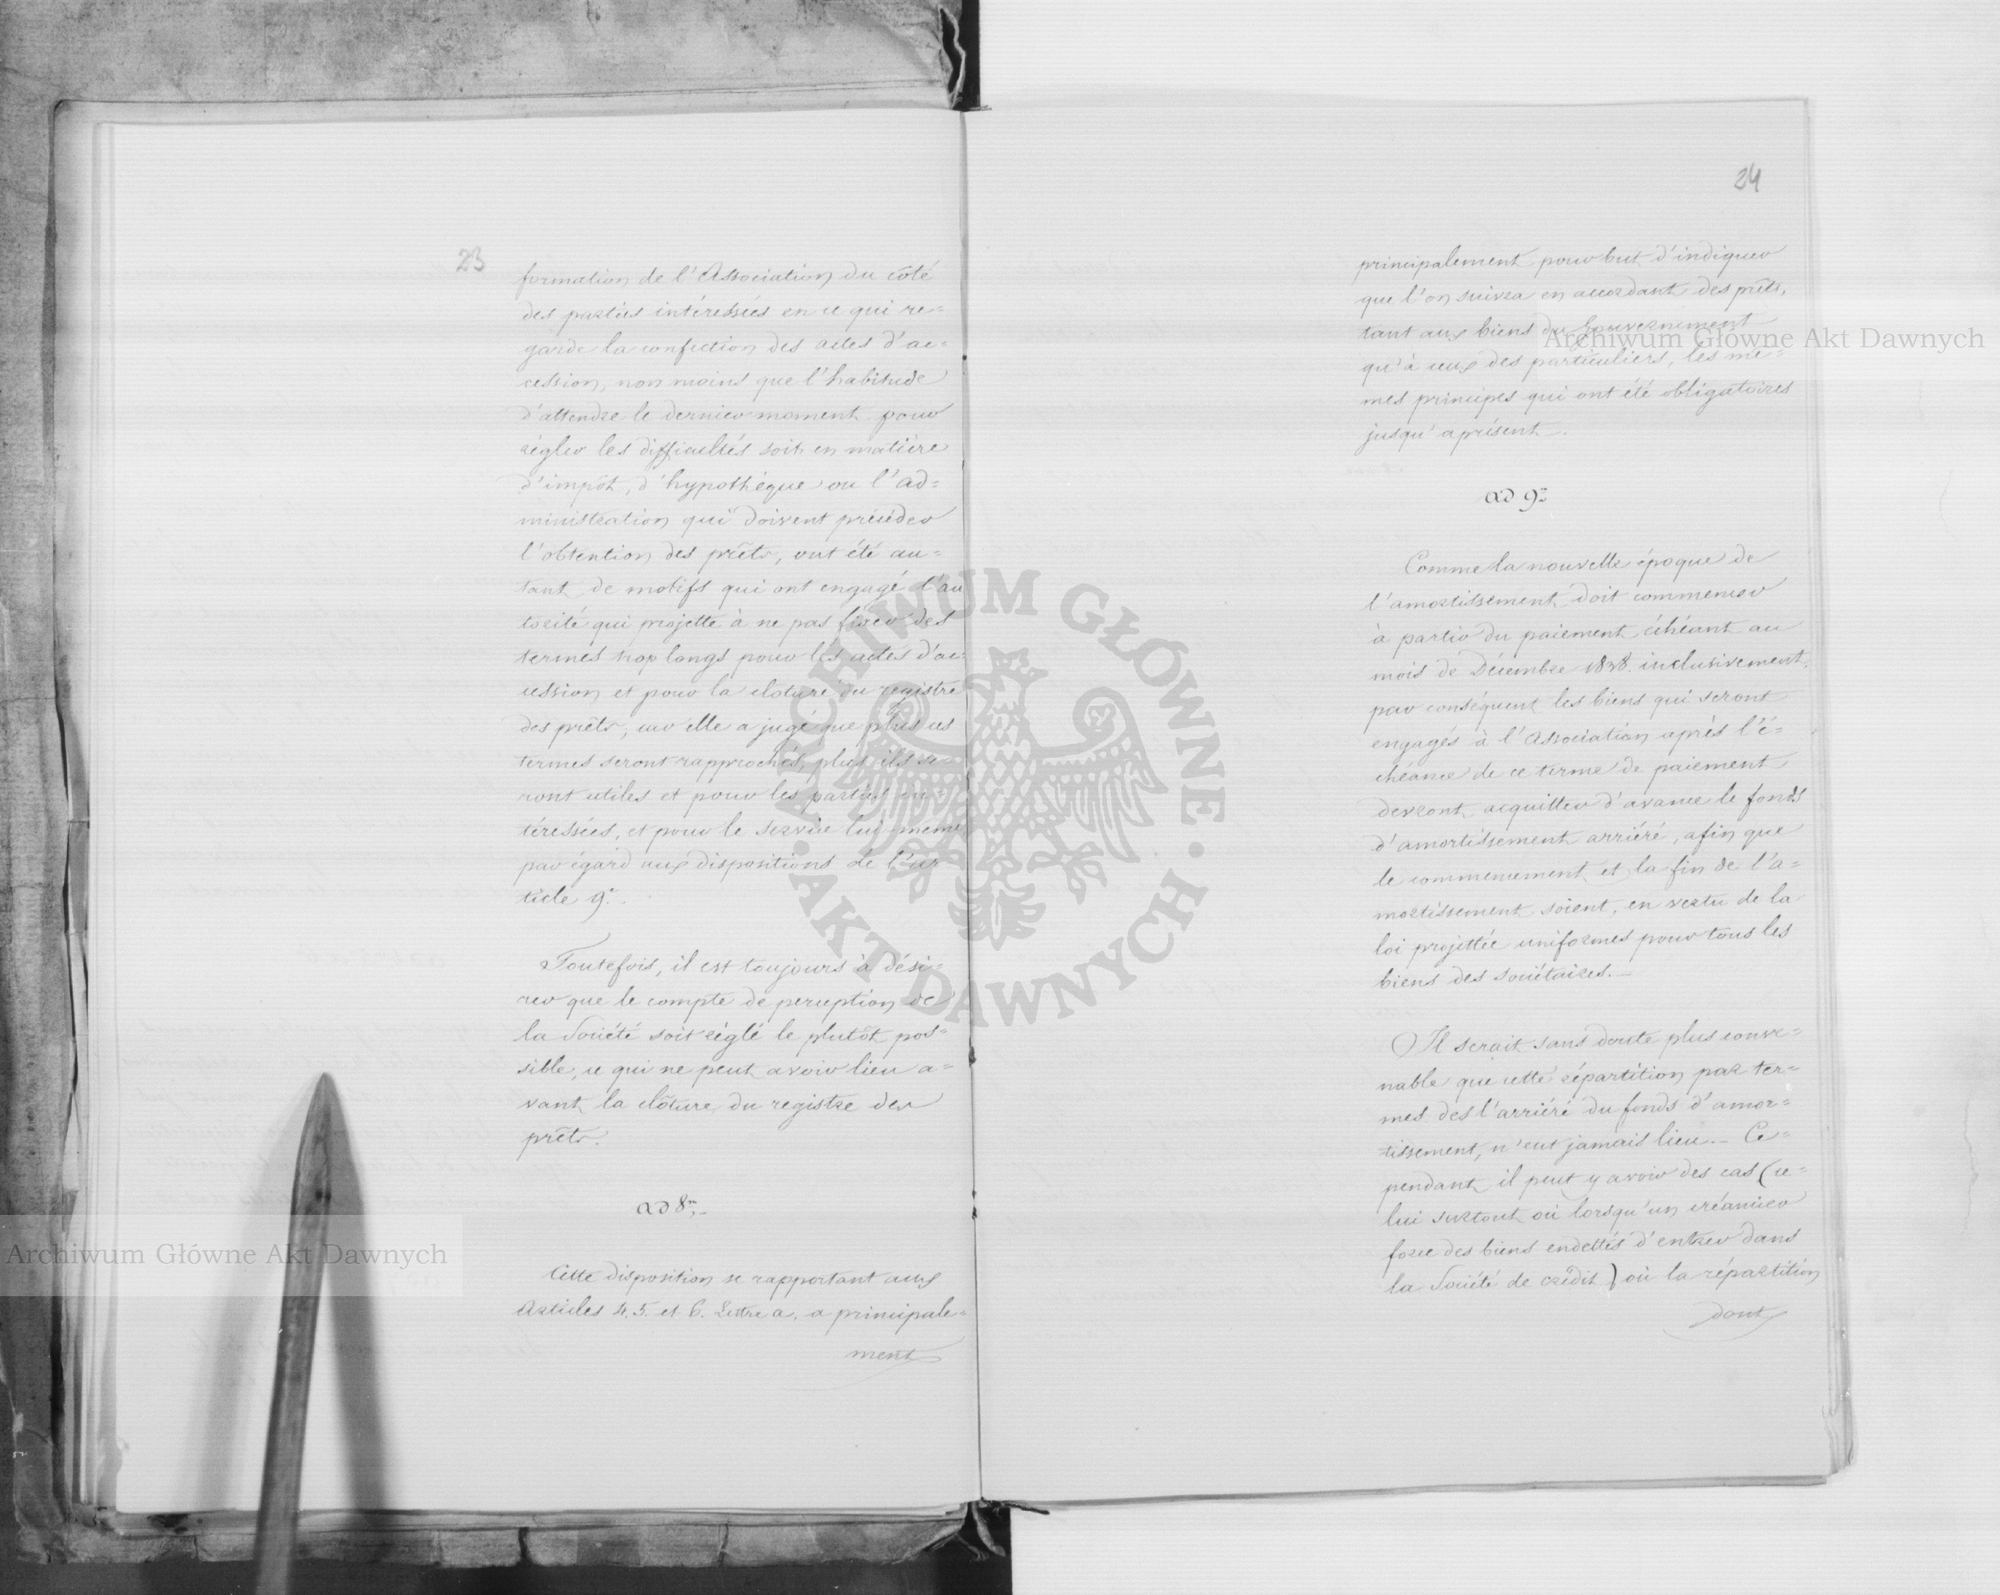 23
formation de l'Association du côté
des parties intéressées en ce qui re=
garde la confection des actes d'ac=
cession, non moins que l'habitude
d'attendre le dernier moment pour
régler les difficultés soit en matière
d'impôt, d'hypothéque ou l'ad=
ministration qui doivent précéder
l'obtention des prêts, ont été au=
tant de motifs qui ont engagé l'au
torité qui projette à ne pas fixer des
termes trop longs pour les actes d'ac=
cession et pour la clôture du registre
des prêts, car elle a jugé que plus ces
termes seront rapprochés, plus ils se=
ront utiles et pour les parties in=
téressées, et pour le service lui-même
par égard aux dispositions de l'ar
ticle 9.
Toutefois, il est toujours à dési=
rer que le compte de perception de
la Société soit réglé le plutôt pos=
sible, ce qui ne peut avoir lieu a=
vant la clôture du registre des
prêts.
ad 8m
Cette disposition se rapportant aux
Articles 4. 5. et 6. Lettre a, a principale=
ment
24
principalement pour but d'indiquer
que l'on suivra en accordant des prêts,
tant aux biens du Gouvernement
qu'à ceux des particuliers, les mê=
mes principes qui ont été obligatoires
jusqu'aprésent.
ad 9m
Comme la nouvelle époque de
l'amortissement doit commencer
à partir du paiement échéant au
mois de Décembre 1838. inclusivement,
par conséquent les biens qui seront
engagés à l'Association après l'é=
chéance de ce terme de paiement
devront acquitter d'avance le fonds
d'amortissement arriéré, afin que
le commencement et la fin de l'a=
mortissement soient, en vertu de la
loi projettée uniformes pour tous les
biens des sociétaires.
Il serait sans doute plus conve=
nable que cette répartition par ter=
mes des l'arriéré du fonds d'amor=
tissement, n'eut jamais lieu. Ce=
pendant il peut y avoir des cas (ce=
lui surtout où lorsqu'un créancier
force des biens endettés d'entrer dans
la Société de crédit) où la répartition
dont
Archiwum Główne Akt Dawnych
Archiwum Główne Akt Dawnych
ARCHIWUM GŁÓWNE · AKT DAWNYCH ·